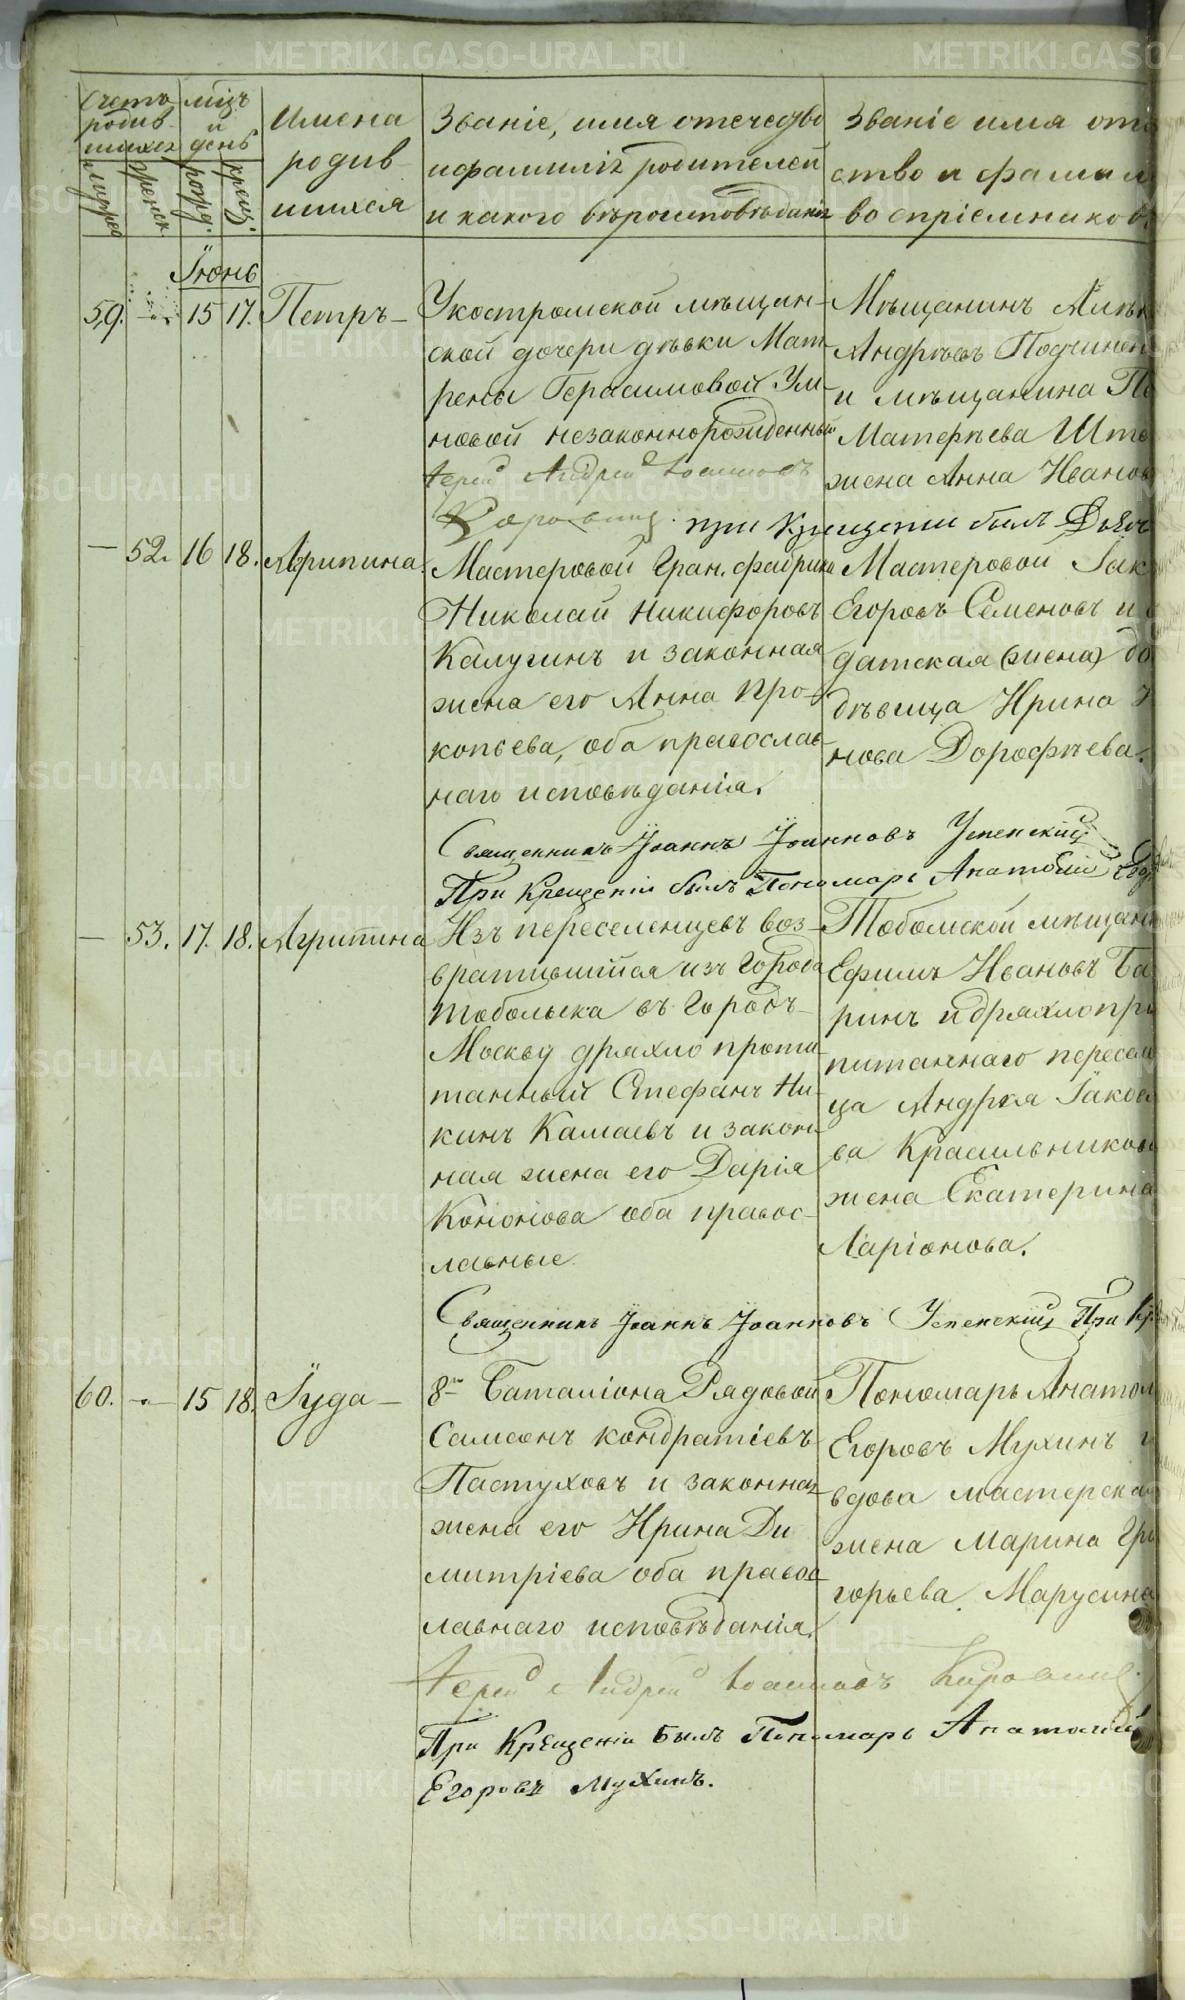 METRIKI.GASO-URAL.RU
Счетъ родив- шихся
мѣсяцъ и день
Имена родив- шихся
Званіе, имя отечество и фамилія родителей и какого вѣроисповѣданія
Званіе имя отч ство и фамил воспріемников
мужеск женск рожд. крещ.
Іюнь
59. — 15 17. Петръ —
У костромской мѣщан-
ской дочери дѣвки Мат-
рены Герасимовой Ум-
новой незаконнорожденный
Мѣщанинъ
Андрѣевъ
и мѣщанина
Матѳѣева
жена Анна Иванов
Іерей Андрей
при Крещеніи былъ
— 52. 16 18. Агрипина.
Мастеровой Гран. фабрики
Николай Никифоровъ
Калугинъ и законная
жена его Анна Про-
копьева, оба православ-
наго исповѣданія.
Мастеровой Іак
Егоровъ Семеновъ и
датская (жена) до
дѣвица Ирина
нова Дорофѣева.
Священникъ Іоаннъ Іоанновъ Успенскій
При Крещеніи былъ Пономарь Анатолій
— 53. 17. 18. Агрипина
Изъ переселенцевъ воз-
вратившійся изъ города
Тобольска въ Городъ
Москву дряхло пропи-
танный Стефанъ Ни-
кинъ Камаевъ и закон-
ная жена его Дарія
Кононова оба правос-
лавные
Тобольской мѣщан
Ефимъ Ивановъ Ба
ринъ и дряхлопро
питаннаго пересел
ца Андрея Іаковл
ва Красильников
жена Екатерина
Ларіонова.
Священникъ Іоаннъ Іоанновъ Успенскій При Кр
60. — 15 18. Іуда —
8го Баталіона Рядовой
Самсонъ Кондратіевъ
Пастуховъ и законная
жена его Ирина Ди
митріева оба правос
лавнаго исповѣданія.
Пономарь Анатол
Егоровъ Мухинъ и
вдова мастерска
жена Марина Гри
горьева Марусина
Іерей Андрей
При Крещеніи былъ Пономарь Анатолій
Егоровъ Мухинъ.